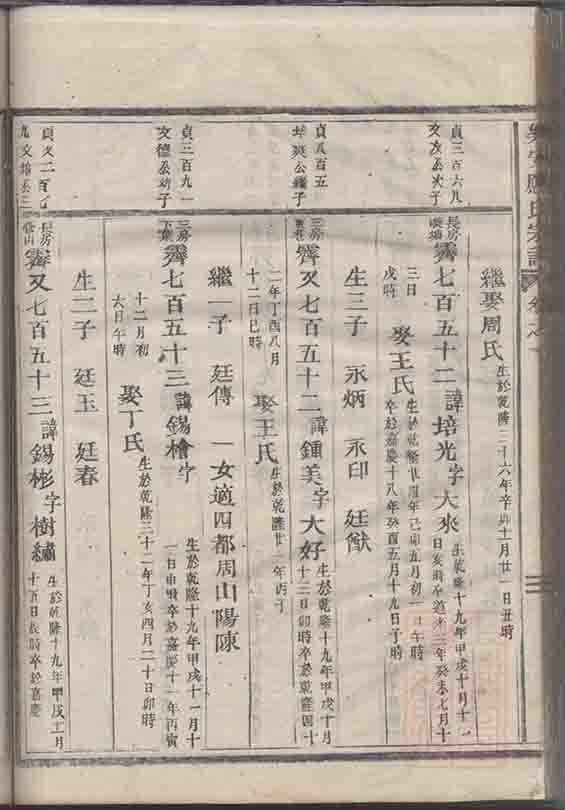 應氏宗譜
繼娶周氏
生於乾隆二十六年辛巳十月廿一日丑時
貞三百六九
次子
長房
霽七百五十二
諱培光字大來
生乾隆十九年甲戌十月十一
日亥時卒道光三年癸未七月十
三日
戌時
娶王氏
卒於嘉慶十八年癸酉五月十九日子時
生三子 永炳 永印 廷猷
貞八百五
三房
霽又七百五十二
諱鍾美字大好
生於乾隆十九年甲戌十月
十三日卯時卒於乾隆四十
二年丁酉八月
十二日巳時
娶王氏
繼一子 廷傳 一女適四都周山陽陳
貞三百九一
文德公幼子
三房
霽七百五十三
諱錫檜字
生於乾隆十九年甲戌十一月十
一日申時卒於嘉慶十一年丙寅
十二月初
六日午時
娶丁氏
生於乾隆三十二年丁亥四月二十日卯時
生二子 廷玉 廷春
長房
霽又七百五十三
諱錫彬字樹繡
生於乾隆十九年甲戌十二月
十五日辰時卒於嘉慶